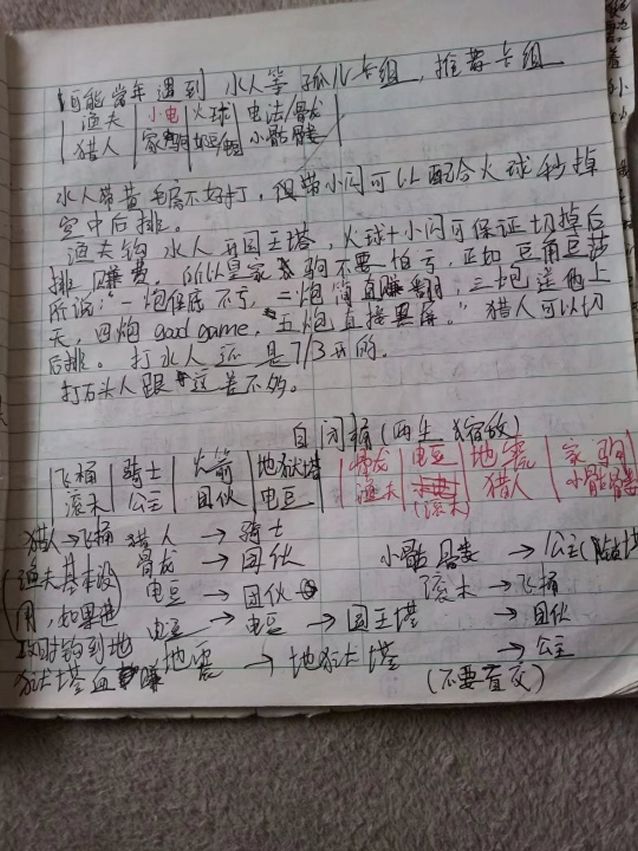 可能当年遇到 水人等 孤儿卡组，推荐卡组
渔夫 | 小电 | 火球 | 电法/骨龙
猎人 | 家驹 | | 小骷髅
水人带黄毛 不好打，但带小闪可以配合火球秒掉
空中后排。
渔夫钩水人开国王塔，火球+小闪可保证切掉后
排赚费。所以皇家驹不要怕亏，正如豆角豆莎
所说："一炮保底不亏，二炮简直赚翻，三炮送他上
天，四炮 good game，五炮直接黑屏。"猎人可以切
后排。打水人还是7/3开的。
打石头人跟这差不多。
自闭桶(两生 缩放)
飞桶 | 骑士 | 火箭 | 地狱塔 | 骨龙 | 电豆 | 地震 | 家驹
滚木 | 公主 | 团伙 | 电豆 | 渔夫 | (滚木) | 猎人 | 小骷髅
猎人→飞桶 猎人 → 骑士
骨龙 → 团伙 小骷髅 → 公主(
(渔夫基本没 电豆 → 团伙 滚木 → 飞桶
用，如果进 电豆 → 电豆 → 国王塔 → 团伙
攻时钩到地 地震 → 地狱塔 → 公主
狱塔血赚 (不要直交)